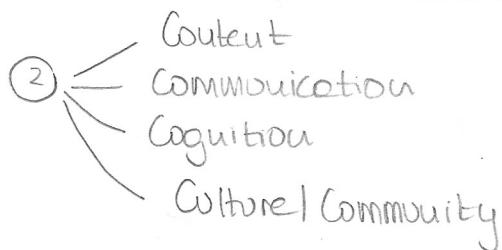 Content
② Communication
Cognition
Culture/Community